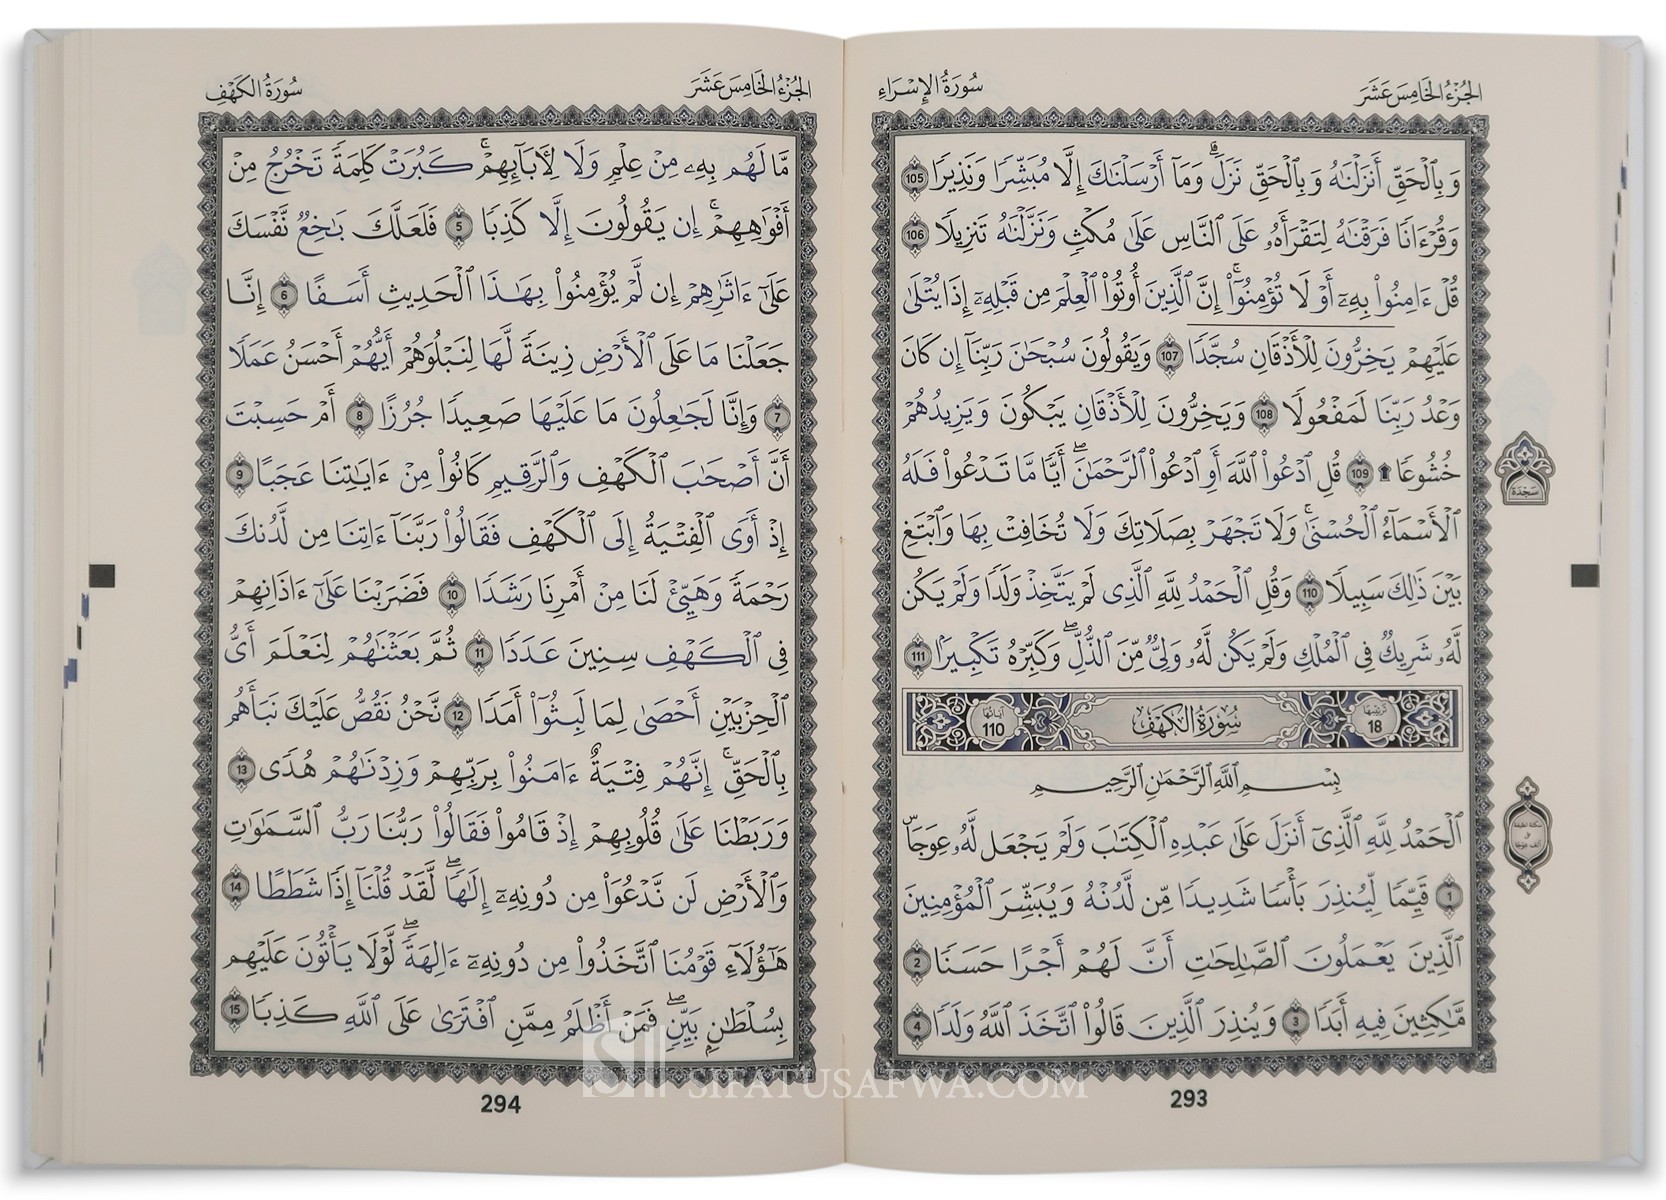 الجُزْءُ الخَامِسَ عَشَرَ
سُورَةُ الإِسْرَاءِ
وَبِٱلْحَقِّ أَنزَلْنَٰهُ وَبِٱلْحَقِّ نَزَلَ ۗ وَمَآ أَرْسَلْنَٰكَ إِلَّا مُبَشِّرًا وَنَذِيرًا 105
وَقُرْءَانًا فَرَقْنَٰهُ لِتَقْرَأَهُۥ عَلَى ٱلنَّاسِ عَلَىٰ مُكْثٍ وَنَزَّلْنَٰهُ تَنزِيلًا 106
قُلْ ءَامِنُوا۟ بِهِۦٓ أَوْ لَا تُؤْمِنُوٓا۟ ۚ إِنَّ ٱلَّذِينَ أُوتُوا۟ ٱلْعِلْمَ مِن قَبْلِهِۦٓ إِذَا يُتْلَىٰ
عَلَيْهِمْ يَخِرُّونَ لِلْأَذْقَانِ سُجَّدًا 107 وَيَقُولُونَ سُبْحَٰنَ رَبِّنَآ إِن كَانَ
وَعْدُ رَبِّنَا لَمَفْعُولًا 108 وَيَخِرُّونَ لِلْأَذْقَانِ يَبْكُونَ وَيَزِيدُهُمْ
خُشُوعًا ۩ 109 قُلِ ٱدْعُوا۟ ٱللَّهَ أَوِ ٱدْعُوا۟ ٱلرَّحْمَٰنَ ۖ أَيًّا مَّا تَدْعُوا۟ فَلَهُ
ٱلْأَسْمَآءُ ٱلْحُسْنَىٰ ۚ وَلَا تَجْهَرْ بِصَلَاتِكَ وَلَا تُخَافِتْ بِهَا وَٱبْتَغِ
بَيْنَ ذَٰلِكَ سَبِيلًا 110 وَقُلِ ٱلْحَمْدُ لِلَّهِ ٱلَّذِى لَمْ يَتَّخِذْ وَلَدًا وَلَمْ يَكُن
لَّهُۥ شَرِيكٌ فِى ٱلْمُلْكِ وَلَمْ يَكُن لَّهُۥ وَلِىٌّ مِّنَ ٱلذُّلِّ ۖ وَكَبِّرْهُ تَكْبِيرًۢا 111
ترتيبها 18 سُورَةُ الكَهْفِ آياتها 110
بِسْمِ ٱللَّهِ ٱلرَّحْمَٰنِ ٱلرَّحِيمِ
ٱلْحَمْدُ لِلَّهِ ٱلَّذِىٓ أَنزَلَ عَلَىٰ عَبْدِهِ ٱلْكِتَٰبَ وَلَمْ يَجْعَل لَّهُۥ عِوَجَاۜ
1 قَيِّمًا لِّيُنذِرَ بَأْسًا شَدِيدًا مِّن لَّدُنْهُ وَيُبَشِّرَ ٱلْمُؤْمِنِينَ
ٱلَّذِينَ يَعْمَلُونَ ٱلصَّٰلِحَٰتِ أَنَّ لَهُمْ أَجْرًا حَسَنًا 2
مَّٰكِثِينَ فِيهِ أَبَدًا 3 وَيُنذِرَ ٱلَّذِينَ قَالُوا۟ ٱتَّخَذَ ٱللَّهُ وَلَدًا 4
سجدة
سكتة لطيفة
على
ألف عوجا
293
الجُزْءُ الخَامِسَ عَشَرَ
سُورَةُ الكَهْفِ
مَّا لَهُم بِهِۦ مِنْ عِلْمٍ وَلَا لِءَابَآئِهِمْ ۚ كَبُرَتْ كَلِمَةً تَخْرُجُ مِنْ
أَفْوَٰهِهِمْ ۚ إِن يَقُولُونَ إِلَّا كَذِبًا 5 فَلَعَلَّكَ بَٰخِعٌ نَّفْسَكَ
عَلَىٰٓ ءَاثَٰرِهِمْ إِن لَّمْ يُؤْمِنُوا۟ بِهَٰذَا ٱلْحَدِيثِ أَسَفًا 6 إِنَّا
جَعَلْنَا مَا عَلَى ٱلْأَرْضِ زِينَةً لَّهَا لِنَبْلُوَهُمْ أَيُّهُمْ أَحْسَنُ عَمَلًا
7 وَإِنَّا لَجَٰعِلُونَ مَا عَلَيْهَا صَعِيدًا جُرُزًا 8 أَمْ حَسِبْتَ
أَنَّ أَصْحَٰبَ ٱلْكَهْفِ وَٱلرَّقِيمِ كَانُوا۟ مِنْ ءَايَٰتِنَا عَجَبًا 9
إِذْ أَوَى ٱلْفِتْيَةُ إِلَى ٱلْكَهْفِ فَقَالُوا۟ رَبَّنَآ ءَاتِنَا مِن لَّدُنكَ
رَحْمَةً وَهَيِّئْ لَنَا مِنْ أَمْرِنَا رَشَدًا 10 فَضَرَبْنَا عَلَىٰٓ ءَاذَانِهِمْ
فِى ٱلْكَهْفِ سِنِينَ عَدَدًا 11 ثُمَّ بَعَثْنَٰهُمْ لِنَعْلَمَ أَىُّ
ٱلْحِزْبَيْنِ أَحْصَىٰ لِمَا لَبِثُوٓا۟ أَمَدًا 12 نَّحْنُ نَقُصُّ عَلَيْكَ نَبَأَهُم
بِٱلْحَقِّ ۚ إِنَّهُمْ فِتْيَةٌ ءَامَنُوا۟ بِرَبِّهِمْ وَزِدْنَٰهُمْ هُدًى 13
وَرَبَطْنَا عَلَىٰ قُلُوبِهِمْ إِذْ قَامُوا۟ فَقَالُوا۟ رَبُّنَا رَبُّ ٱلسَّمَٰوَٰتِ
وَٱلْأَرْضِ لَن نَّدْعُوَا۟ مِن دُونِهِۦٓ إِلَٰهًا ۖ لَّقَدْ قُلْنَآ إِذًا شَطَطًا 14
هَٰٓؤُلَآءِ قَوْمُنَا ٱتَّخَذُوا۟ مِن دُونِهِۦٓ ءَالِهَةً ۖ لَّوْلَا يَأْتُونَ عَلَيْهِم
بِسُلْطَٰنٍۭ بَيِّنٍ ۖ فَمَنْ أَظْلَمُ مِمَّنِ ٱفْتَرَىٰ عَلَى ٱللَّهِ كَذِبًا 15
294
SIFATUSAFWA.COM